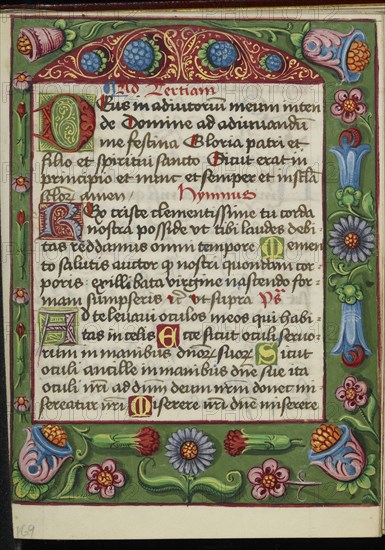 Ad Tertiam
Deus in adiutoriū meum inten
de Domine ad adiuuandū
me festina Gloria patri et
filio et spiritui sancto Sicut erat in
principio et nunc et semper et in secula
seculor amen Hymnus
Rex xp̄riste clementissime tu corda
nostra posside vt tibi laudes debi-
tas reddamus omni tempore Memen
to salutis auctor qͥ nostri quondam cor-
poris ex illibata virgine nascendo for-
mam sumpseris vt supra Ps
Ad te leuaui oculos meos qui habi-
tas in celis Ecce sicut oculi seruo-
rum in manibus dn̄or suor Sicut
oculi ancille in manibus dn̄e sue ita
oculi nr̄i ad dn̄m deum nr̄m donec mi
sereatur nr̄i Miserere nr̄i dn̄e miserere
169